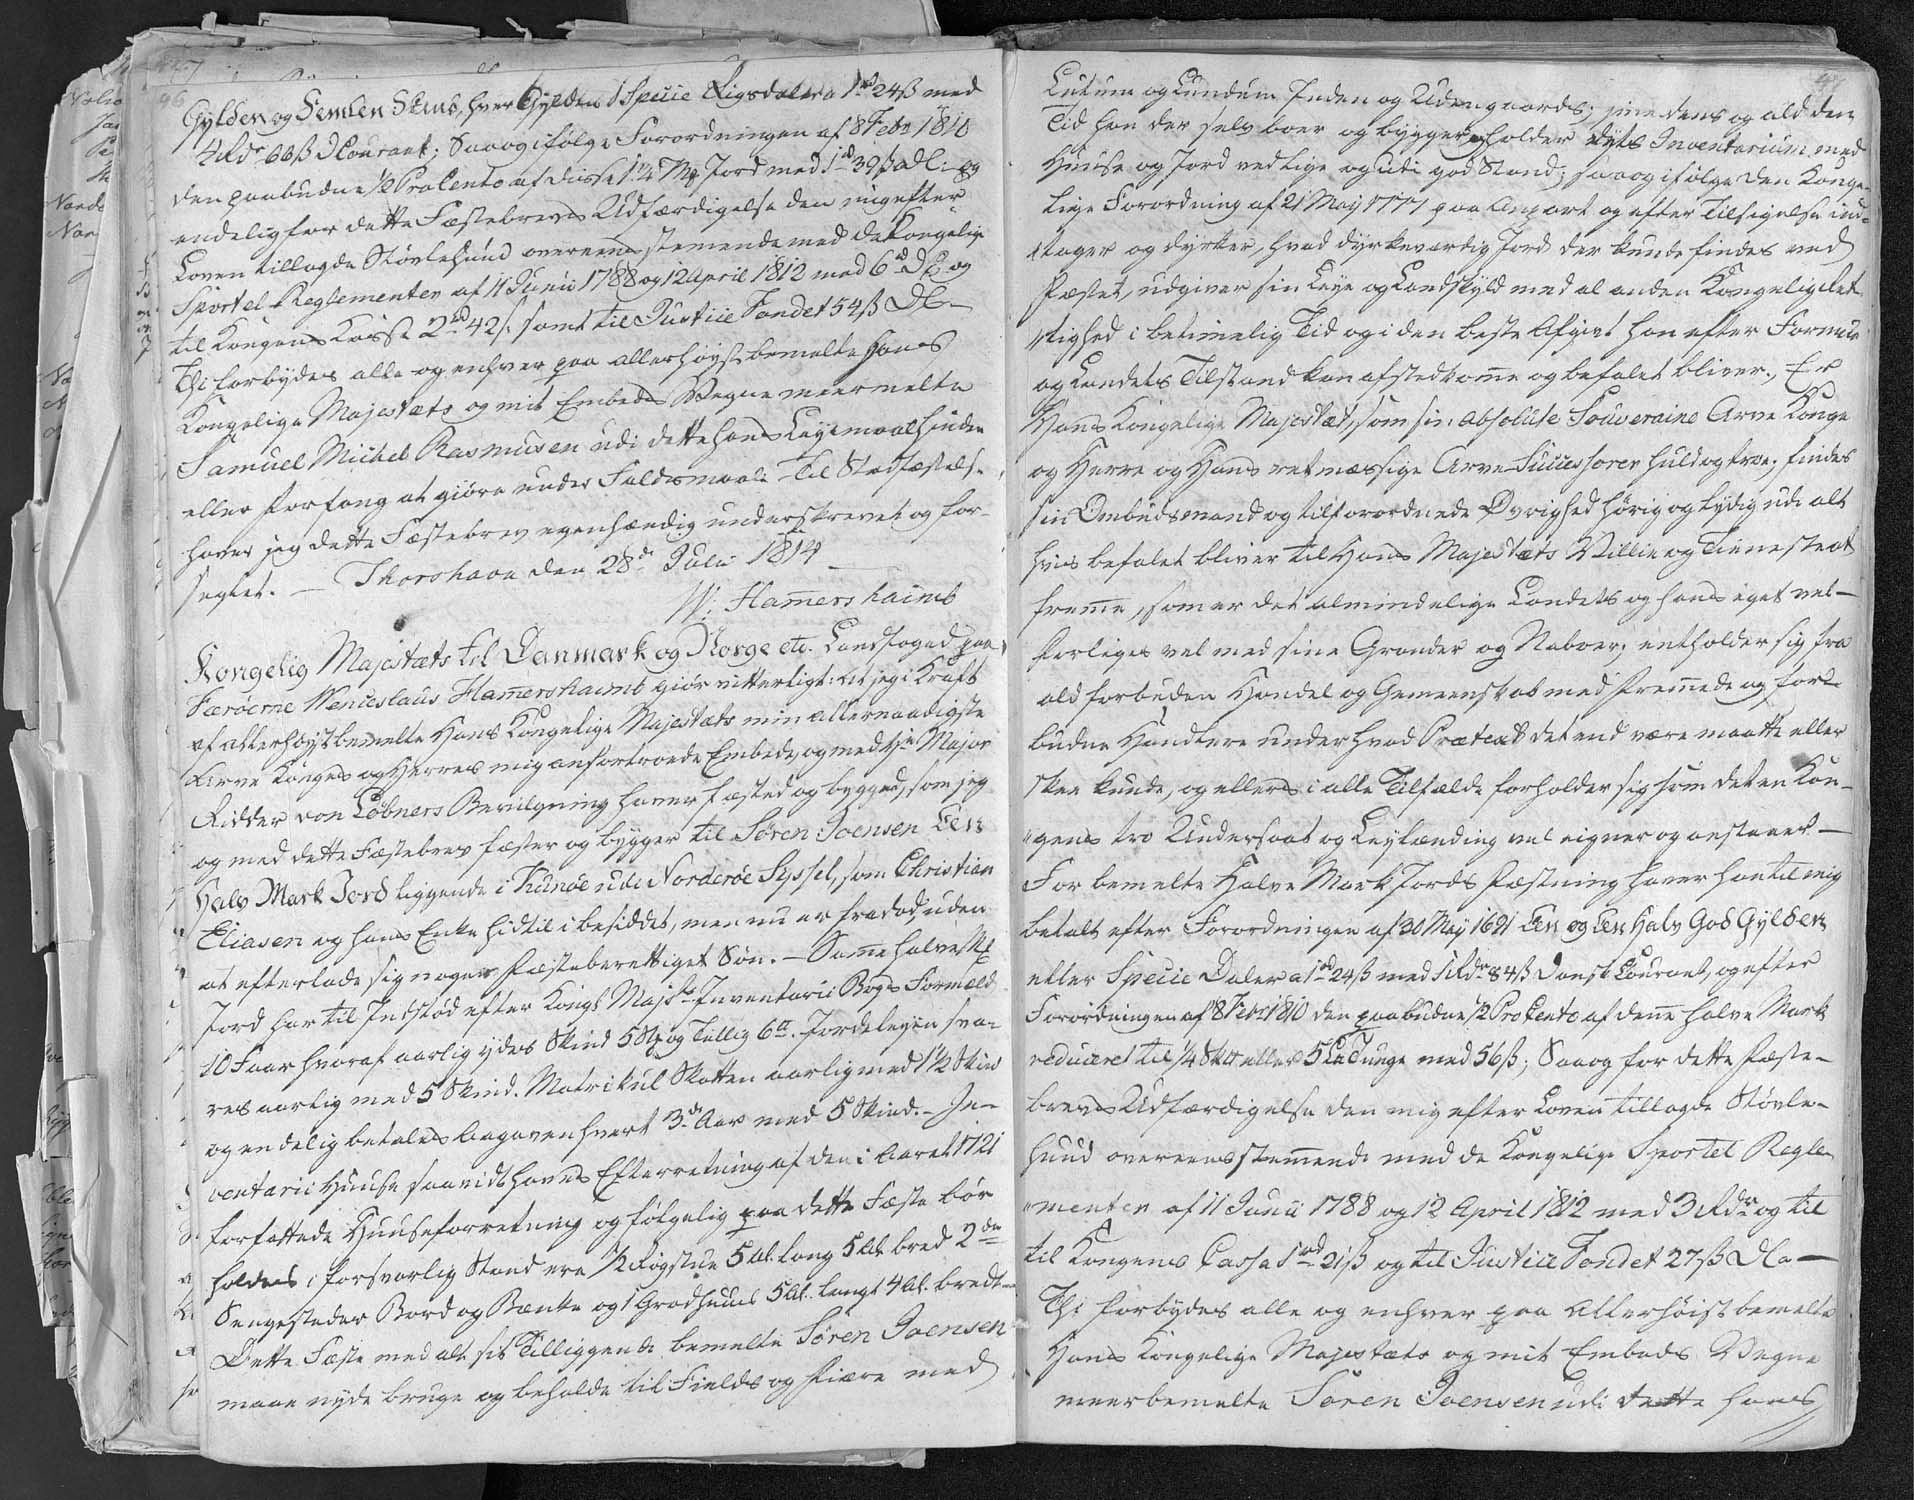 46
Gylden og Femten Skind, hver Gylden 1 Specie Rigsdaler a 1rd 24ß med
4 Rdr 66ß D Courant; Saa og ifølge Forordningen af 8 Febr 1810
den paabudne ½ ProCento af disse 1¼ Mk Jord med 1rd 39ß a DC: og
endelig for dette Fæstebrevs Udfærdigelse den mig efter
Loven tillagde Støvlehuud overeensstemmende med de Kongelige
Sportel-Reglementer af 11 Junii 1788 og 12 April 1812 med 6rd DC og
til Kongens Kasse 2rd 42ß. samt til Justice Fondet 54ß DC
Thi forbydes alle og enhver paa allerhøystbemelte Hans
Kongelige Majestæts og mit Embeds Vegne meermelte
Samuel Michel Rasmusen udi dette hans Leyemaal hinder
eller Forfang at giøre under Faldsmaal. Til Stadfæstelse
haver jeg dette Fæstebrev egenhændig underskrevet og for-
seglet. — Thorshavn den 28de Julii 1814
W: Hamershaimb
Kongelig Majestæts til Danmark og Norge etc. Landfoged paa
Færøerne Wenceslaus Hamershaimb giør vitterligt: At jeg i Kraft
af allerhøystbemelte Hans Kongelige Majestæts min allernaadigste
Arve Konges og Herres mig anfortroede Embede, og med Hr Major
Ridder von Løbners Bevilgning haver fæsted og bygged, som jeg
og med dette Fæstebrev fæster og bygger til Søren Joensen Een
Halv Mark Jord liggende i Kunøe udi Norderøe Syssel, som Christian
Eliasen og hans Enke hidtil i besiddet, men nu er fradød uden
at efterlade sig nogen Fæsteberettiget Søn. — Samme halve Mk
Jord har til Indstød efter Kongl Majsts Inventarii Bogs Formæld
10 Faar hvoraf aarlig ydes Skind 5 Stk og Tællig 6 ℔. Jordeleyen sva-
res aarlig med 5 Skind. Matrikul Skatten aarlig med 1½ Skind
og endelig betales Aagaven hvert 3de Aar med 5 Skind. — In-
ventarii Huuse saavidt haves Efterretning af den i Aaret 1721
forfattede Huuseforretning og følgelig paa dette Fæste bør
holdes i forsvarlig Stand ere ½ Røgstue 5 Al. lang 5 Al. bred 2de
Sengesteder Bord og Bænke og 1 Gradhuus 5 Al. langt 4 Al. bredt
Dette Fæste med alt sit Tilliggende bemelte Søren Joensen
maae nyde bruge og beholde til Fields og Fiære med
47
Lutum og Lundum Inden og Uden gaards; sine dens og ald den
Tid han der selv boer og bygger, holder dets Inventarium med
Huuse og Jord vedlige og udi god Stand; saa og ifølge den Konge-
lige Forordning af 21 May 1777 paa Anpart og efter Tilsigelse ind-
tager og dyrker, hvad dyrkeværdig Jord der kunde findes ved
Fæstet, udgiver sin Leye og Landskyld med al anden Kongelig Ret
tighed i betimelig Tid og i den beste Afgivt han efter Formue
og Landets Tilstand kan afstedkomme og befalet bliver. Er
Hans Kongelige Majestæt, som sin absolute Souveraine Arve Konge
og Herre og Hans retmæssige Arve-Successorer huld og troe; findes
sin Ombudsmand og tilforordnede Øvrighed hørig og lydig udi alt
hvis befalet bliver til Hans Majestæts Villie og Tieneste at
fremme, som er det almindelige Landets og hans eget vel —
forliges vel med sine Grander og Naboer; entholder sig fra
ald forbuden Handel og Gemeenskab med fremmede og for-
budne Handlere under hvad Prætext det end være maatte eller
skee kunde, og ellers i alle Tilfælde forholder sig som det en Kon-
"gens tro Undersaat og Leylænding vel eigner og anstaaer —
For bemelte Halve Mark Jords Fæstning haver han til mig
betalt efter Forordningen af 30 May 1691 Een og Een Halv God Gylden
eller Specie Daler a 1rd 24ß med 1 Rdr 84ß Dansk Courant, og efter
Forordningen af 8 Febr 1810 den paabudne ½ ProCento af denne halve Mark
reduceret til ¼ eller 5 med 56ß; Saa og for dette Fæste-
brevs Udfærdigelse den mig efter Loven tillagde Støvle-
huud overeensstemmende med de Kongelige Sportel Regle-
"menter af 11 Junii 1788 og 12 April 1812 med 3 Rdr og til
til Kongens Cassa 1rd 21ß og til Justice Fondet 27ß DC —
Thi forbydes alle og enhver paa Allerhøist bemelte
Hans Kongelige Majestæts og mit Embeds Vegne
meerbemelte Søren Joensen udi dette hans